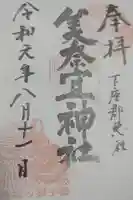 奉拝
下座郡惣社
美奈宜神社
令和元年八月十一日